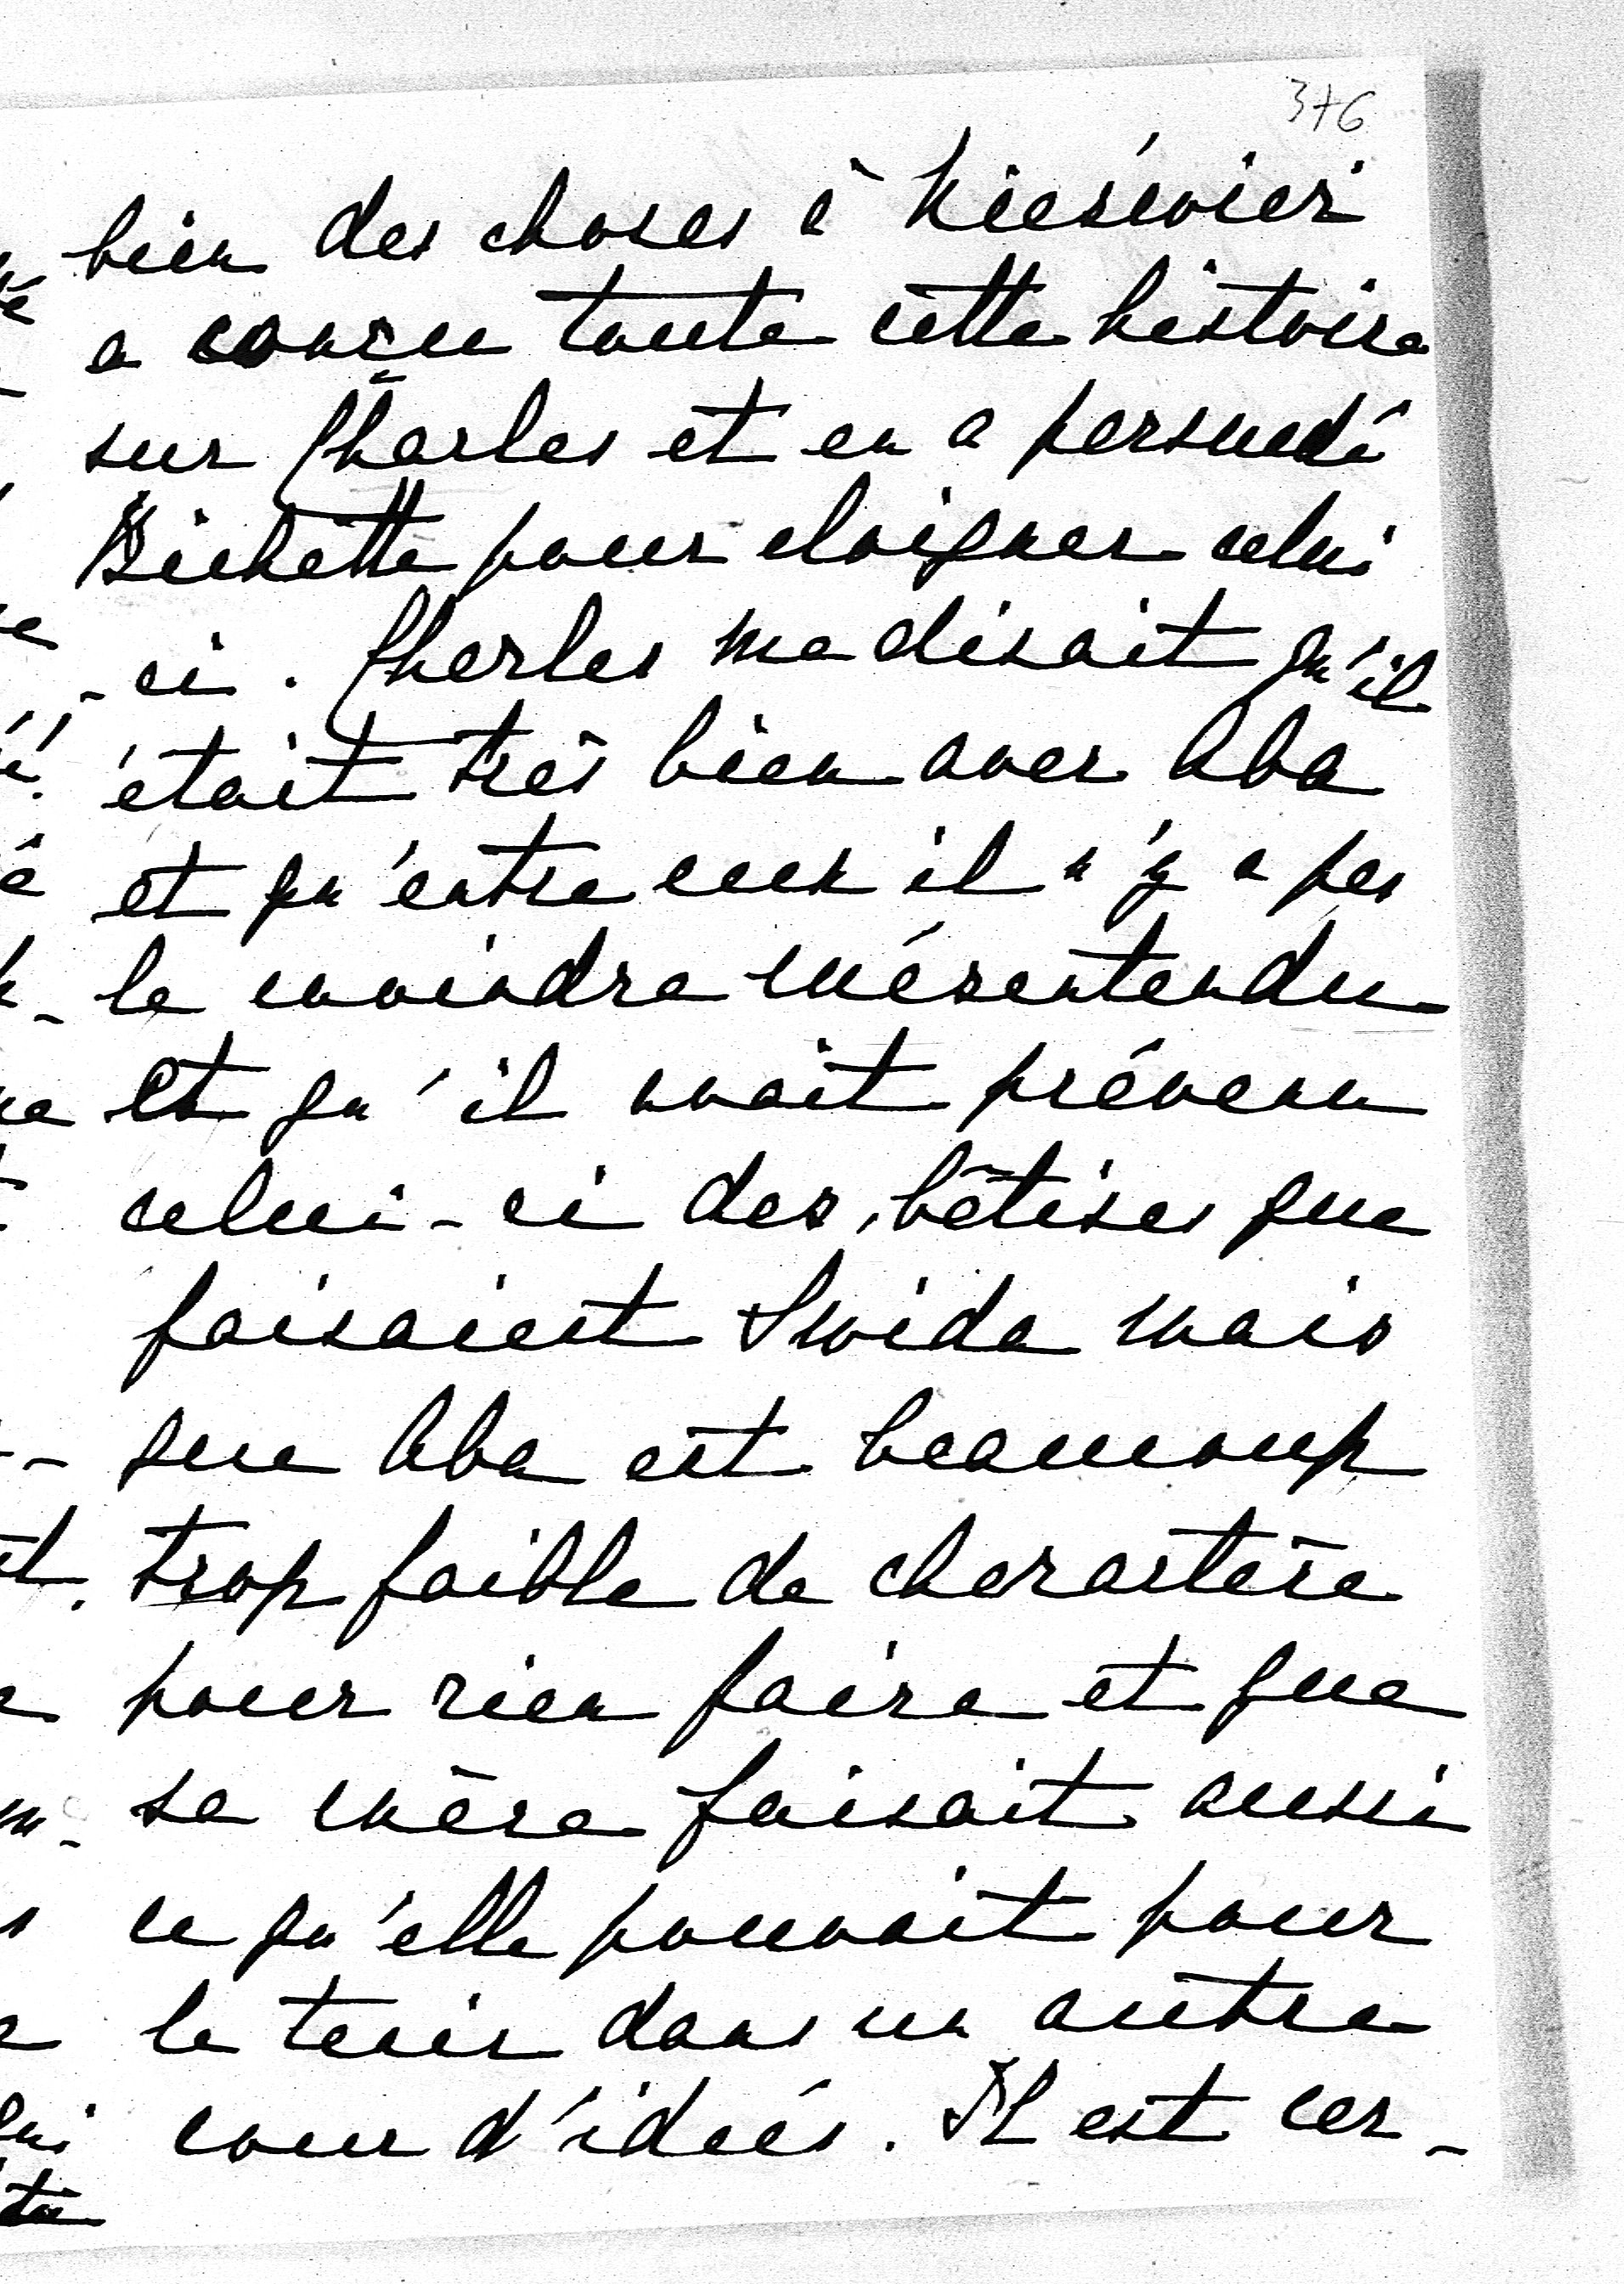 376
bien des choses à Kiesievier
a conçu toute cette histoire
sur Charles et en a persuadé
Bichette pour eloigner celui
-ci. Charles me disait qu'il
était très bien avec Aba
et qu'entre eux il n'y a pas
le moindre mésentendu
et qu'il avait prévenu
celui-ci des bêtises que
faisaient Swida mais
que Aba est beaucoup
trop faible de charactère
pour rien faire et que
sa mère faisait aussi
ce qu'elle pouvait pour
le tenir dans un autre
cour d'ideés. Il est cer-